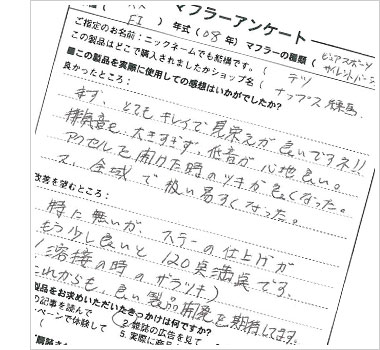 マフラーアンケート
FI ) 年式 ( 08 年) マフラーの種類 ( ピュアスポーツ
サイレントバージ
ご指定のお名前：ニックネームでも結構です。( テツ
この製品はどこで購入されましたかショップ名 ( ナップス 練馬
■この製品を実際に使用しての感想はいかがでしたか?
良かったところ：
まず、とてもキレイで、見栄えが良いですネ!!
排気音も大きすぎず、低音が心地良い。
アクセルを開けた時のツキが良くなった。
又、全域で扱い易くなった。
改善を望むところ：
特に無いが、ステーの仕上げが
もう少し良いと120点満点です。
溶接の時のザラツキ)
これからも、良い製品開発を期待してます。
製品をお求めいただいたきっかけは何ですか?
の記事を読んで
2. 雑誌の広告を見て
ペーンで体験して (
5. 実際に商品